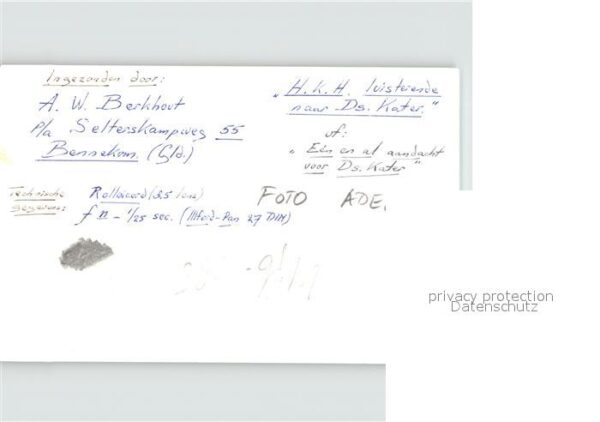 Ingezonden door:
A. W. Berkhout
p/a Selterskampweg 55
Bennekom. (Gld.)
"H.K.H. luisterende
naar Ds. Kater."
of:
"Eén en al aandacht
voor Ds. Kater"
Technische
gegevens:
Rolleicord (3.5 lens)
f 11 - 1/25 sec. (Ilford-Pan 27 DIN)
FOTO ADE.
privacy protection
Datenschutz